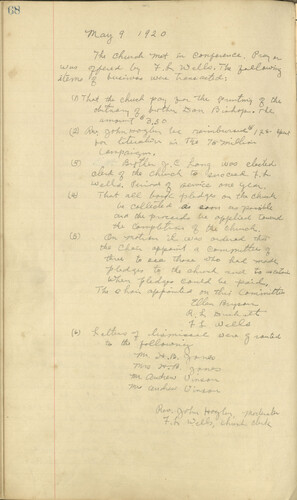 68
May 9 1920
The Church met in conference. Prayer
was offered by F. L. Wells. The following
items of business was transacted:
(1) That the church pay for the printing of the
obituary of brother Dan Bishop. The
amount
(2) Rev. John be reimbursed spent
for literature in the 75 Million
Campaign.
(3) Brother J. E. Long was elected
clerk of the church to succeed F. L.
Wells. Period of service one year.
(4) That all pledges on the church
be collected as soon as possible
and the proceeds be applied toward
the completion of the church.
(5) On motion it was ordered that
the Chair appoint a committee of
three to see those who had made
pledges to the church and to
when pledges could be paid.
The chair appointed on this Committee
Ellen Bryson
R. L.
F. L. Wells
(6) Letters of dismissal were granted
to the following:
Mr. H. B. Jones
Mrs. H. B. Jones
Mr. Andrew Vinson
Mrs. Andrew Vinson
Rev. John Moderator
F. L. Wells, Church Clerk